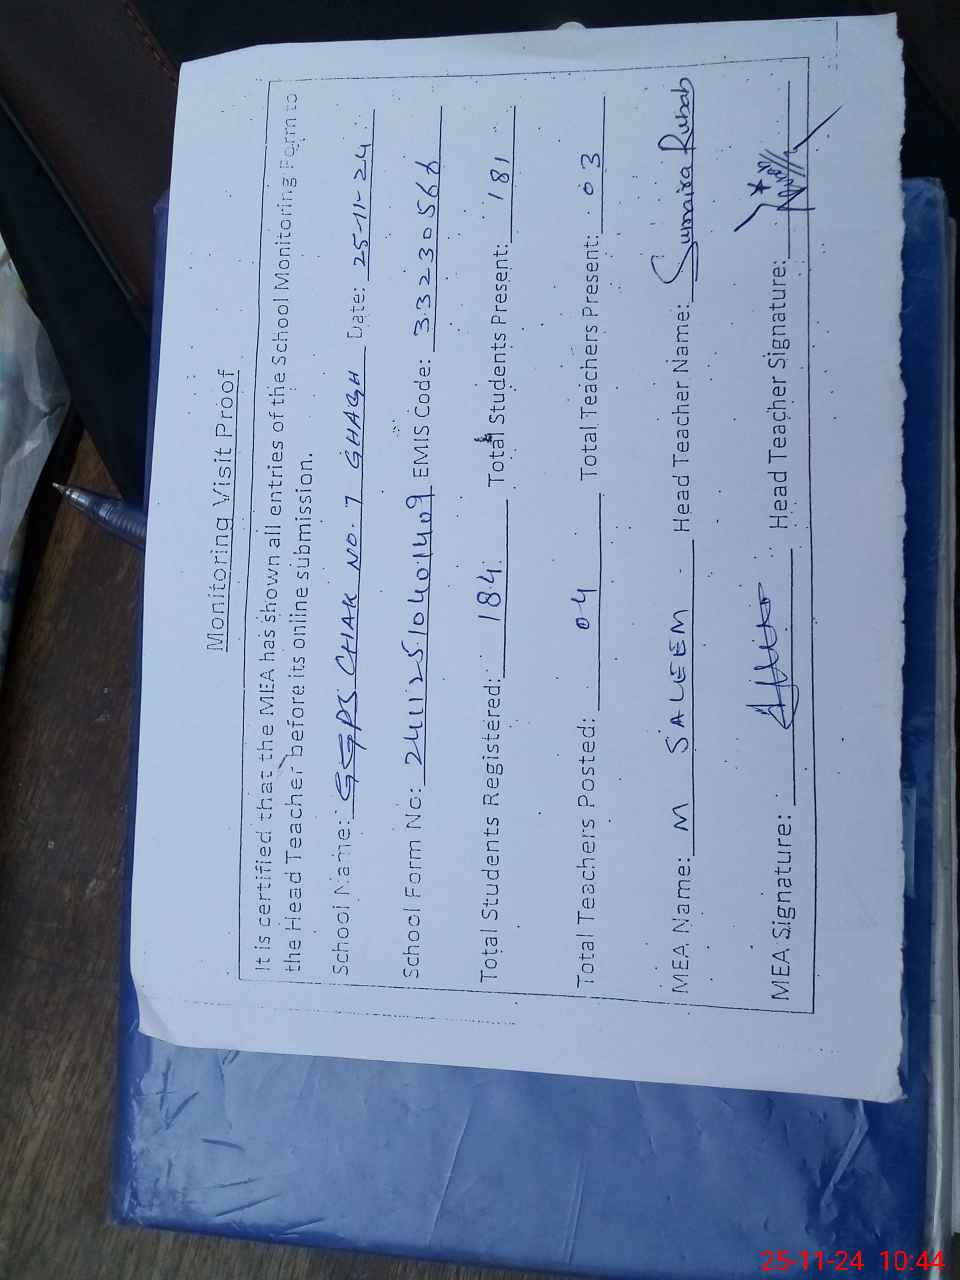 Monitoring Visit Proof
It is certified that the MEA has shown all entries of the School Monitoring Form to
the Head Teacher before its online submission.
School Name: GGPS CHAK NO. 7 GHAGH Date: 25-11-24
School Form No: 24112510401409 EMIS Code: 33230566
Total Students Registered: 184 Total Students Present: 181
Total Teachers Posted: 04 Total Teachers Present: 03
MEA Name: M SALEEM Head Teacher Name: Sumaira Rubab
MEA Signature: Head Teacher Signature:
25-11-24 10:44